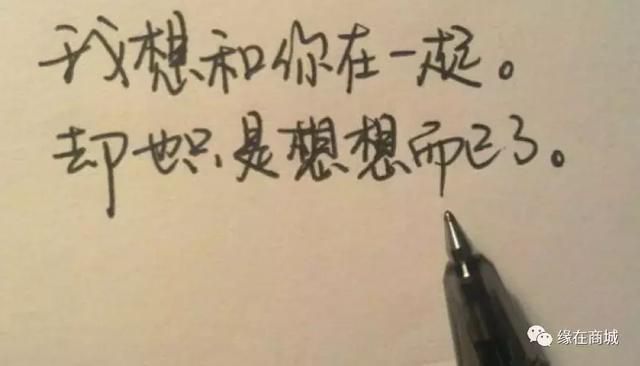 我想和你在一起。
却也只是想想而已了。
缘在商城